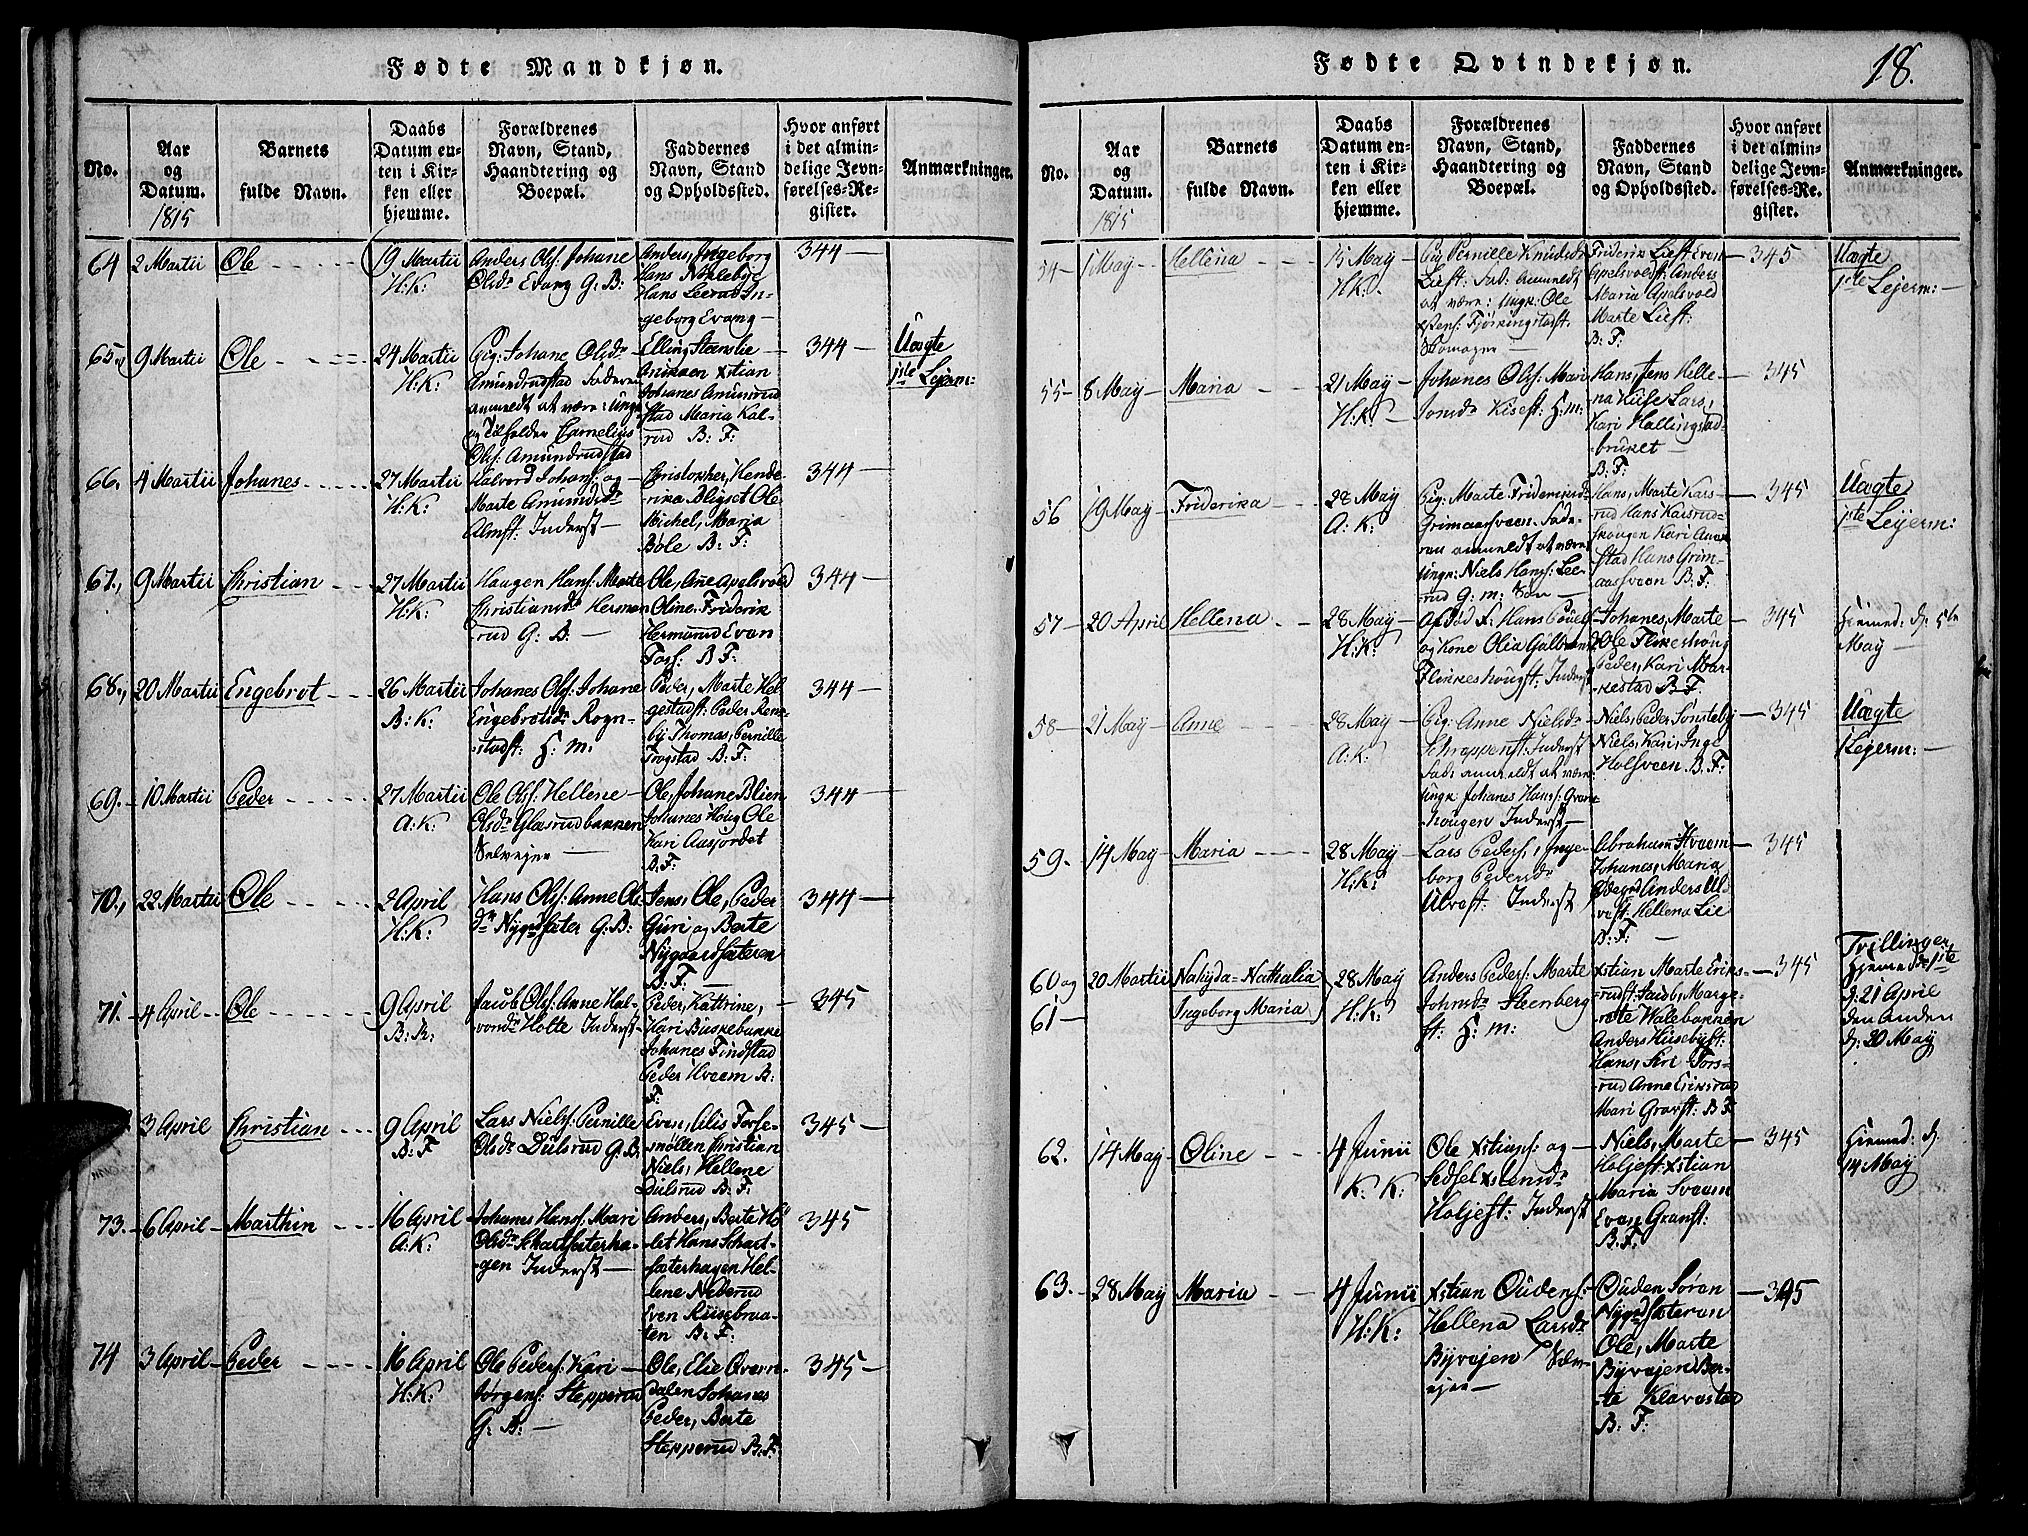 Fødte Mandkjøn.
No.
Aar
og
Datum.
1815
Barnets
fulde Navn.
Daabs
Datum en-
ten i Kir-
ken eller
hjemme.
Forældrenes
Navn, Stand,
Haandtering og
Boepæl.
Faddernes
Navn, Stand
og Opholdssted.
Hvor anført
i det almin-
delige Jevn-
førelses-Re-
gister.
Anmærkninger.
64 2 Martii Ole
19 Martii
H: K:
Anders Ols: Johane
Olsdr Evang G: B:
Anders, Ingeborg
Hans
Hans In-
geborg Evang
344
65 9 Martii Ole
24 Martii
H: K:
Pig: Johane Olsdr
Amundrudstad Faderen
anmeldt at være: Ungk:
Cornelius
Ols: Amundrudstad
Elling Steenslie
Xstian
Johanes Amunrud
stad Maria Kal-
rud B: F:
344
Uægte
1ste Lejerm:
66. 4 Martii Johanes
27 Martii
H: K:
Halvord Johans: og
Marte Amundsdr
Inderst
Christopher, Hende-
rika Bligset Ole
Michel, Maria
Bøle B: F:
344
67. 9 Martii Christian
27 Martii
H: K:
Haagen Hans: Marte
Christiansdr Herman
rud G: B:
Ole, Ane Apelsvold
Oline, Friderik
Hermanrud Even
B F:
344
68. 20 Martii Engebret
26 Martii
B: K:
Johanes Ols: Johane
Engebretsdr Rogn-
stadst: H: m:
Peder, Marte Hel-
gestadst: Peder
Thomas, Pernille
Trogstad B: F:
344
69. 10 Martii Peder
27 Martii
A: K:
Ole Ols: Hellene
Olsdr Glæsrudbakken
Selvejer
Ole, Johane Blien
Johanes Houg Ole
Kari Aasjordet
B: F:
344
70. 22 Martii Ole
2 April
H: K:
Hans Ols: Anne Ols
dr Nygrdsæter G: B:
Jens, Ole, Peder
Guri og Berte
Nygaardsæteren
B: F:
344
71. 4 April Ole
9 April
B: K:
Jacob Ols: Anne Hal-
vordsdr Holte Inderst
Peder, Kattrine,
Kari Buskebakke
Johanes Findstad
Peder Hveem B:
F:
345
3 April Christian
9 April
B: F
Lars Niels: Pernille
Olsdr Dulsrud G: B:
Even, Alis Forse-
møllen Christian
Niels, Hellene
Dulsrud B: F:
345
73. 6 April Marthin
16 April
A: K:
Johanes Hans: Mari
Olsdr Schartsæterha-
gen Inderst
Anders, Berte
Hans Schart-
sæterhagen Hel-
lene Nederud
Even
B: F:
345
74 3 April Peder
16 April
H: K:
Ole Peders: Kari
Jørgens: Stepperud
G: B:
Ole, Elie Qvern-
dalen Johanes
Peder, Berte
Stepperud B: F:
345
Fødte Qvindekjøn.
18.
No.
Aar
og
Datum.
1815
Barnets
fulde Navn.
Daabs
Datum en-
ten i Kir-
ken eller
hjemme.
Forældrenes
Navn, Stand,
Haandtering og
Boepæl.
Faddernes
Navn, Stand
og Opholdssted.
Hvor anført
i det almin-
delige Jevn-
førelses-Re-
gister.
Anmærkninger.
54 1 May Hellena
15 May
H: K:
Pig Pernille Knudsdr
Liest: Fad: Anmeldt
at være: Ungk: Ole
Friderik Liest Even
Apelsvoldst: Anders
Maria Apelsvold
Marte Liest:
B: F:
345
Uægte
1ste Lejerm:
55 8 May Maria
21 May
H: K:
Johanes Ols: Mari
Jonsdr Kisest: H: m:
Hans, Jens Helle-
na Kise Lars,
Kari Hallingstad-
bruket
B: F:
345
56 19 May Friderika
28 May
A: K:
Pig: Marte Frideriksdr
Grimaasveen Fade-
ren anmeldt at være
Ungk: Niels Hans: Lee-
rud G: m: Søn
Hans, Marte Kars-
rud Hans Karsrud-
skougen Kari
Hans Grim-
aasveen B: F:
345
Uægte
1ste Lejerm:
57 20 April Hellena
28 May
H: K:
Hans Pouels:
og Kone Olia Gulbrans
Flikeshougst: Inderst
Johanes, Marte
Ole Flikeshoug
Peder, Kari Mar-
kestad B: F:
345
Hiemed: d: 5te
May
58 21 May Anne
28 May
A: K:
Pig: Anne Nielsdr
Inderst
Fad: anmeldt at være
Ungk Johanes Hans: Gran-
hougen Inderst
Niels, Peder Sønsteby
Niels, Kari, Inge
Holsveen B: F:
345
Uægte
1 Lejerm:
59. 14 May Maria
28 May
H: K:
Lars Peders:, Inge-
borg Pedersdr
Ulvest: Inderst
Abraham Hveem
Johanes, Maria
Anders Ul-
vest: Hellena Lie
B: F:
345
60 og 20 Martii Nahyda-Nathalia
61 Ingeborg Maria
28 May
H: K:
Anders Peders: Marte
Johnsdr Steenberg
st: H: m:
Xstian Marte Eriks-
rudst: Jacob, Marge-
rete Walebakken
Anders Husebyst:
Hans, Siri Fors-
rud Anne Eriksrud
Mari Gravst: B: F
345
Tvillinger
Hjemed: 1ste
d: 21 April
den Anden
d: 20 May
62. 14 May Oline
4 Junii
K: K:
Ole Xstians: og
Sedsel Xstensdr
Holjest: Inderst
Niels, Marte
Holjest: Xstian
Maria Sveem
Even Granst:
B: F:
345
Hiemed: d:
14 May
63. 28 May Maria
4 Junii
H: K:
Xstian Oudens:
Hellena Larsdr
Byvejen Selv-
ejer
Ouden Søren
Nygrdsæteren
Ole, Marte
Byvejen Ber-
te Klavestad
B: F:
345